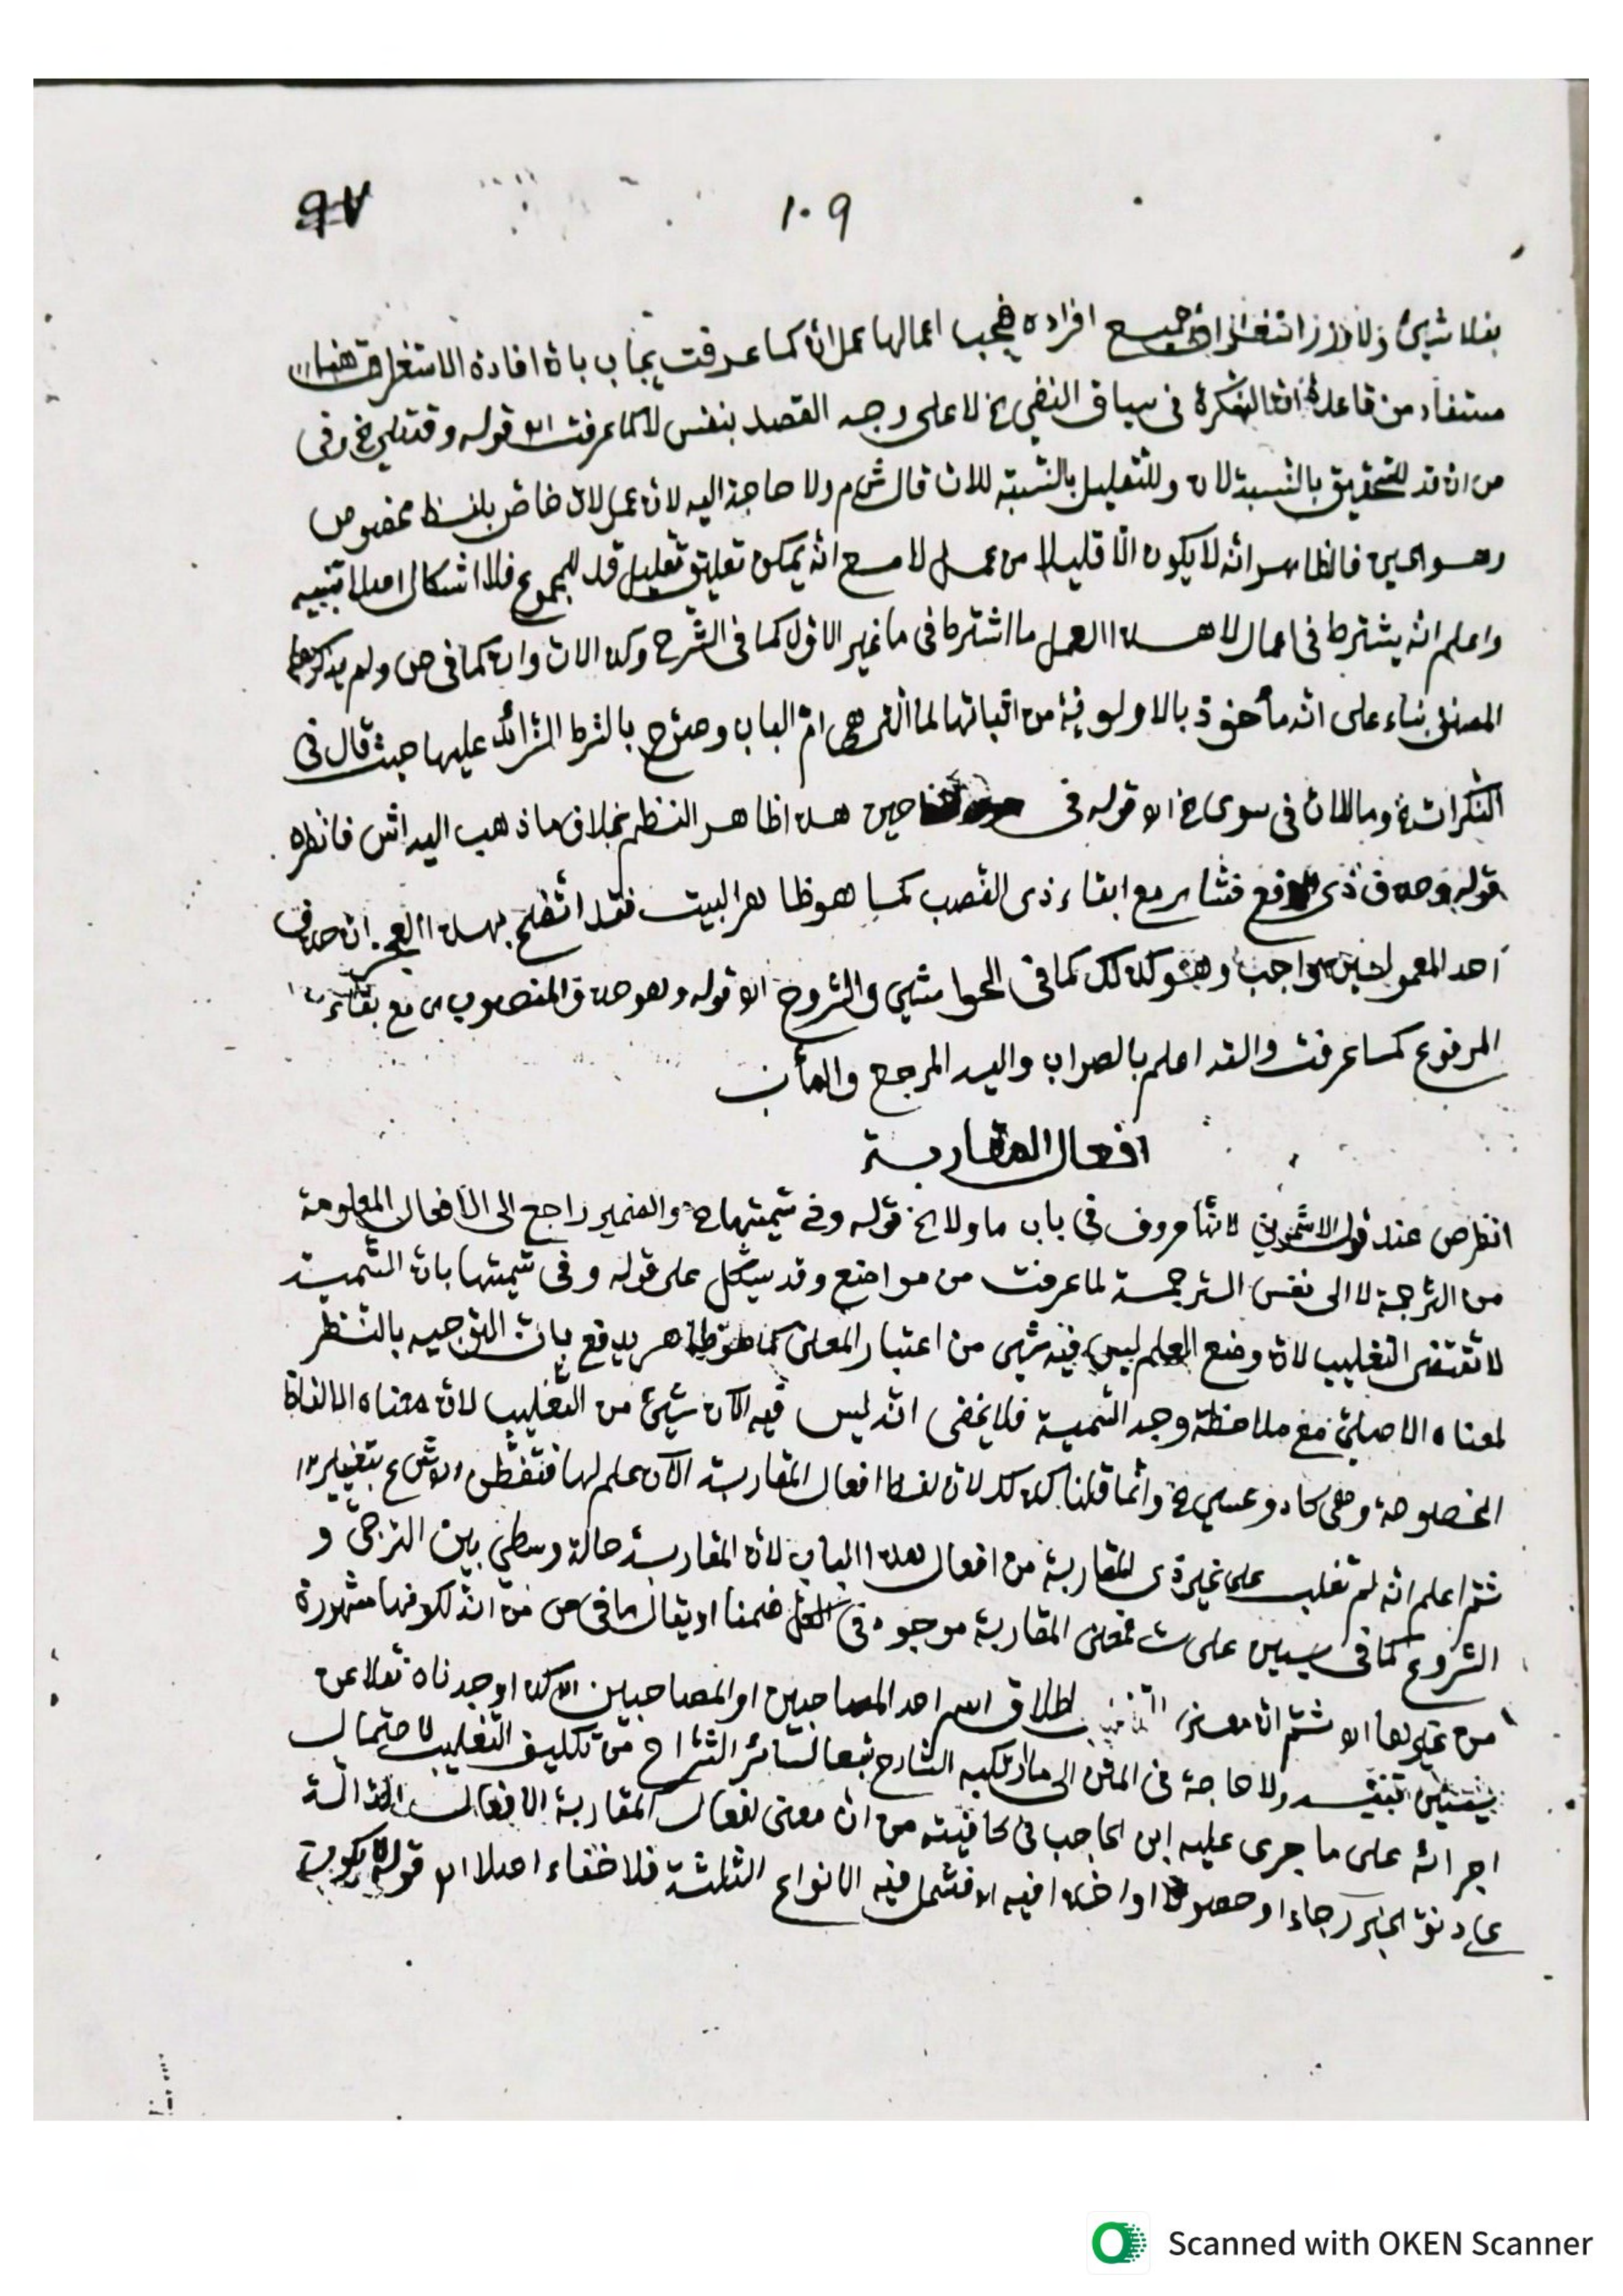 ١٠٩ ٩٧
جميع افراده فيجب اعمالها عمل ان كما عرفت يجاب بان افادة الاستغراق هنا
مستفاد من قاعدة ان النكرة في سياق النفي الخ لا على وجه القصد بنفس لا كما عرفت اه قوله وقد تلي الخ وفي
من ان قد للتحقيق بالنسبة للا وللتقليل بالنسبة للات قال ش م ولا حاجة اليه لان عمل لات خاص بلفظ مخصوص
وهو الحين فالظاهر انه لا يكون الا قليلا من عمل لا مع انه يمكن تعليق تقليل قد للمجموع فلا اشكال اصلا تنبيه
واعلم انه يشترط في اعمال لا هذا العمل ما اشترط في ما غير الاول كما في الشرح وكذا لات وان كما في ص ولم يذكرها
المصنف بناء على انه مأخوذ بالاولوية من اثباتها لما التي هي ام الباب وصرح بالشرط الزائد عليها حيث قال في
النكرات الخ وما للات في سوى الخ اه قوله في حين هذا ظاهر النظم بخلاف ما ذهب اليه اش فانظره
قوله وحذف ذي الرفع فشا اي مع ابقاء ذي النصب كما هو ظاهر البيت فقد اتضح بهذا ان حذف
احد المعمولين واجب وهو كذلك كما في الحواشي والشروح اه قوله وهو حذف المنصوب اي مع بقاء
المرفوع كما عرفت والله اعلم بالصواب واليه المرجع والمأب
افعال المقاربة
انظر ص عند قول الاشموني لانها حروف في باب ما ولا الخ قوله وفي تسميتها الخ والضمير راجع الى الافعال المعلومة
من الترجمة لا الى نفس الترجمة لما عرفت من مواضع وقد يشكل على قوله وفي تسميتها بان التسمية
لا تقتضى التغليب لان وضع العلم ليس فيه شيء من اعتبار المعنى كما هو ظاهر يدفع بان التوجيه بالنظر
لمعناه الاصلي مع ملاحظة وجه التسمية فلا يخفى انه ليس فيه الآن شيئ من التغليب لان معناه الالفاظ
المخصوصة وهي كاد وعسي الخ وانما قلنا كذلك لان لفظ افعال المقاربة الآن علم لها فتفطن
ثم اعلم انه لم تغلب على غير ذي المقاربة من افعال هذا الباب لان المقاربة حالة وسطي بين الترجي و
الشروع كما في سين على ش فمعنى المقاربة موجود في ضمنا او يقال ما في ص من انه لكونها مشهورة
من غيرها اه ثم ان معنى اطلاق اسم احد المصاحبين او المصاحبين اه كذا وجدناه نقلا عن
ولا حاجة في المتن الى ما ارتكبه الشارح تبعا لسائر الشراح من تكليف التغليب لاحتمال
اجرائه على ما جرى عليه ابن الحاجب في كافيته من ان معنى افعال المقاربة الافعال الدالة
على دنو الخبر رجاء او حصولا او اخذا فيه اه فتشمل فيه الانواع الثلثة فلا خفاء اصلا اه قوله
Scanned with OKEN Scanner